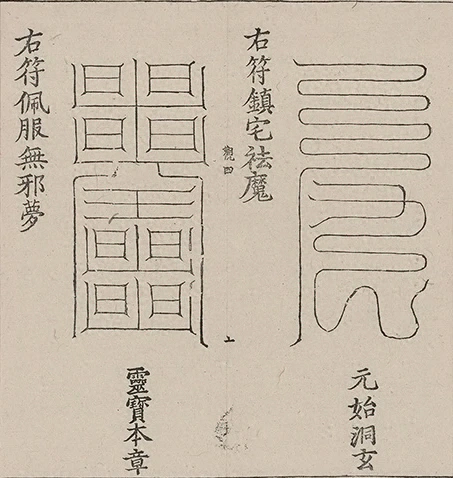 元始洞玄
右符鎮宅祛魔
觀四
靈寶本章
右符佩服無邪夢